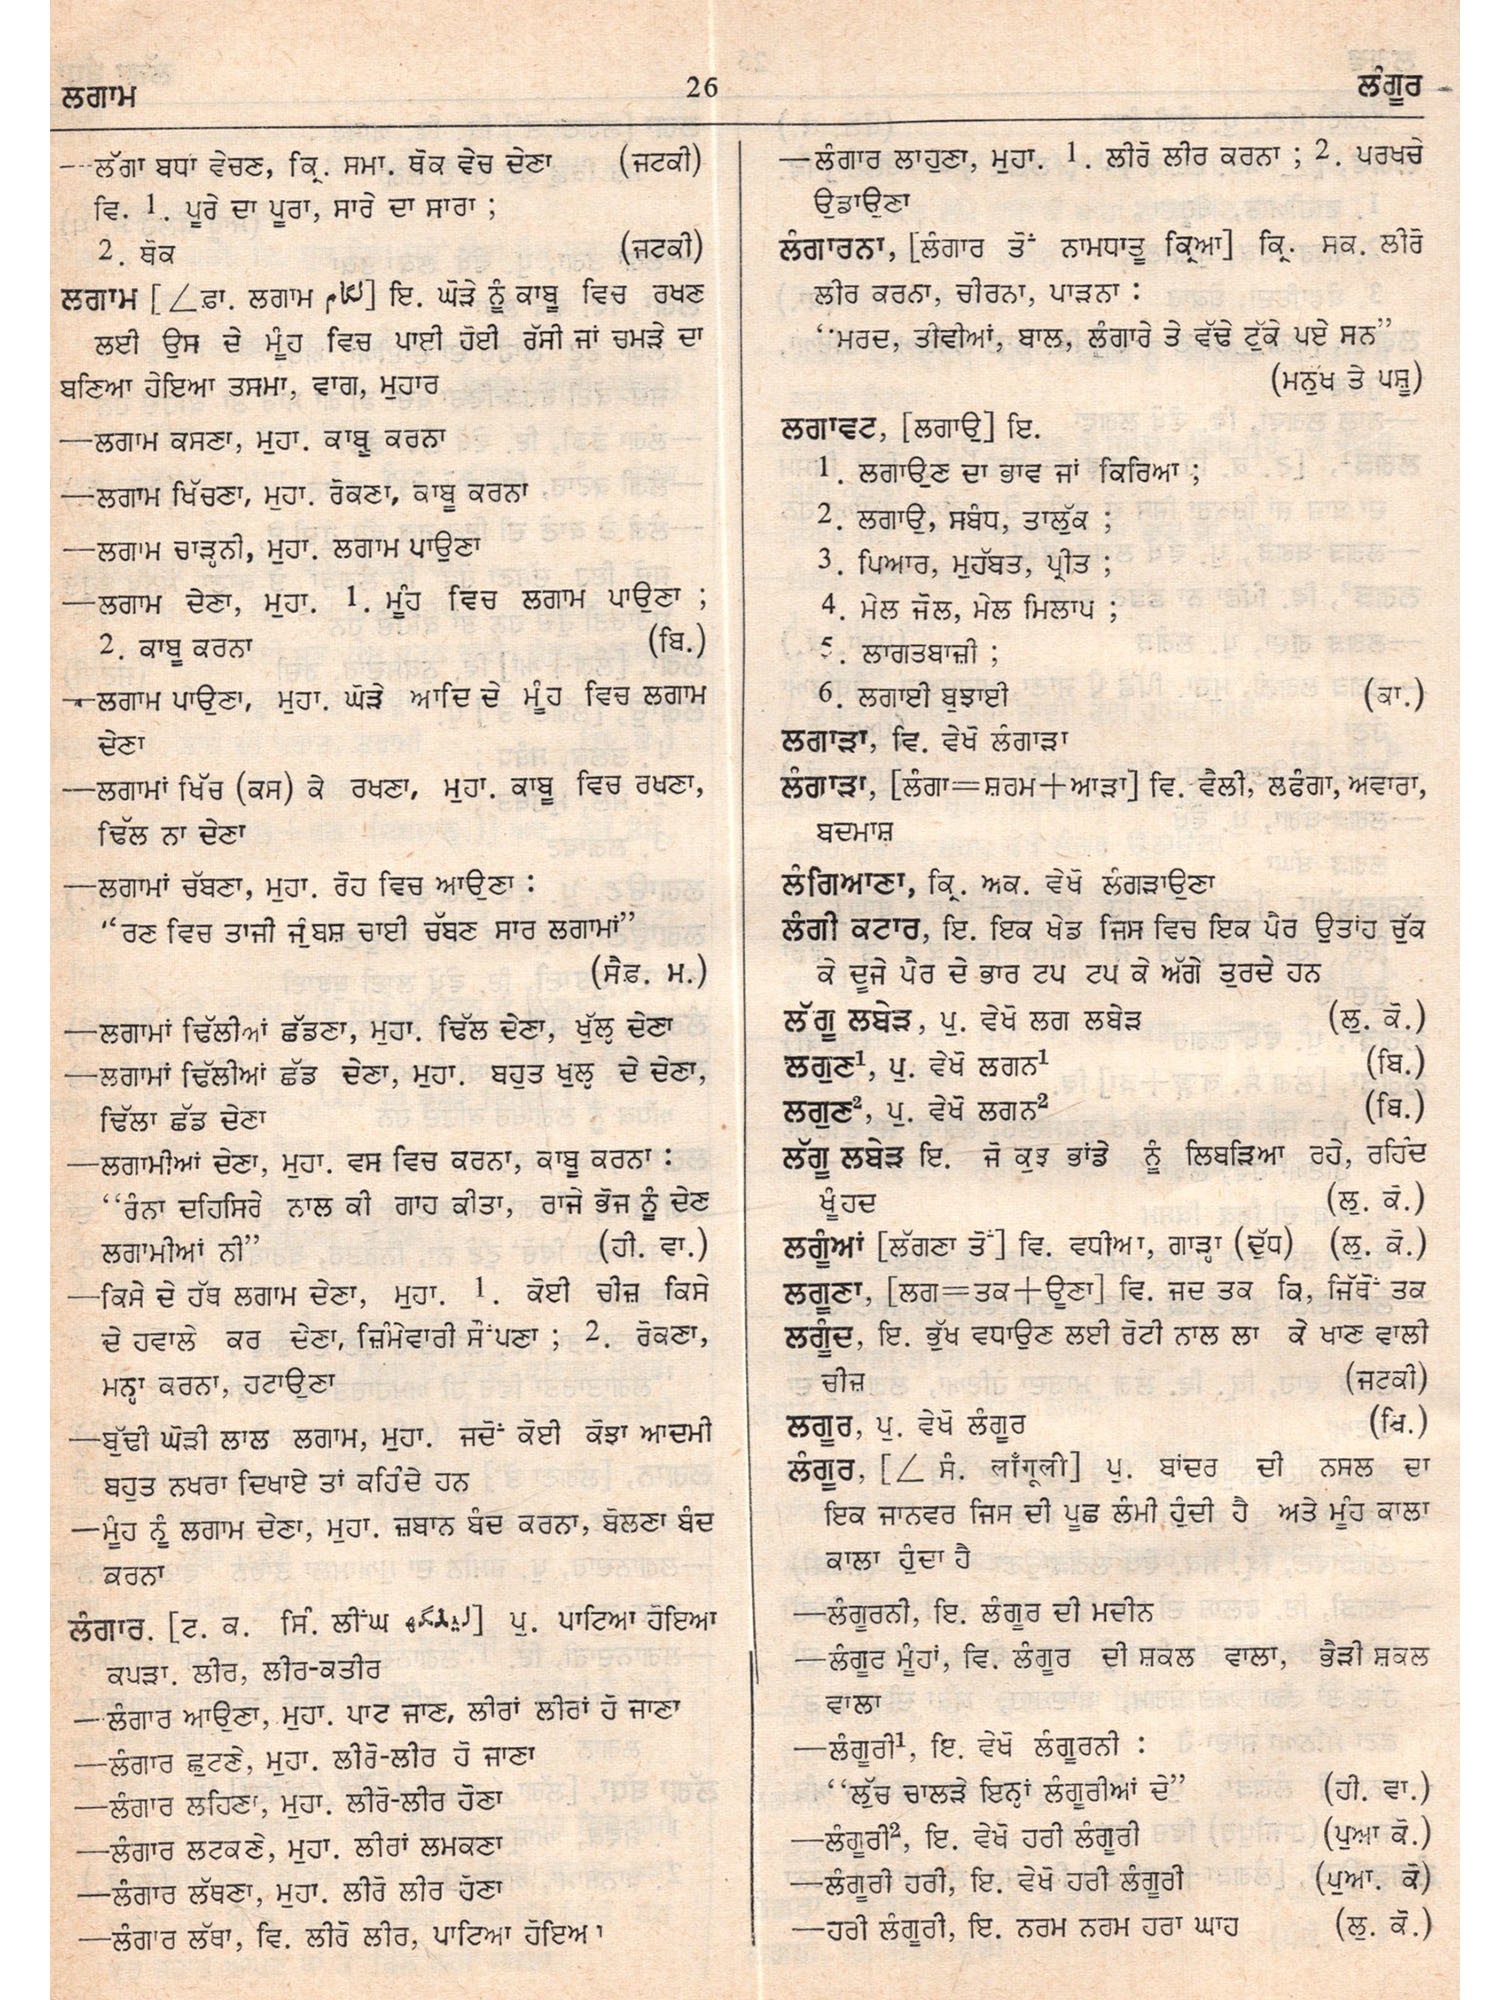 ਲਗਾਮ
26
ਲੰਗੂਰ
—ਲੱਗਾ ਬਧਾ ਵੇਚਣ, ਕ੍ਰਿ. ਸਮਾ. ਥੋਕ ਵੇਚ ਦੇਣਾ (ਜਟਕੀ)
ਵਿ. 1. ਪੂਰੇ ਦਾ ਪੂਰਾ, ਸਾਰੇ ਦਾ ਸਾਰਾ ;
2. ਥੋਕ (ਜਟਕੀ)
ਲਗਾਮ [∠ਫ਼ਾ. ਲਗਾਮ لگام] ਇ. ਘੋੜੇ ਨੂੰ ਕਾਬੂ ਵਿਚ ਰਖਣ
ਲਈ ਉਸ ਦੇ ਮੂੰਹ ਵਿਚ ਪਾਈ ਹੋਈ ਰੱਸੀ ਜਾਂ ਚਮੜੇ ਦਾ
ਬਣਿਆ ਹੋਇਆ ਤਸਮਾ, ਵਾਗ, ਮੁਹਾਰ
—ਲਗਾਮ ਕਸਣਾ, ਮੁਹਾ. ਕਾਬੂ ਕਰਨਾ
—ਲਗਾਮ ਖਿੱਚਣਾ, ਮੁਹਾ. ਰੋਕਣਾ, ਕਾਬੂ ਕਰਨਾ
—ਲਗਾਮ ਚਾੜ੍ਹਨੀ, ਮੁਹਾ. ਲਗਾਮ ਪਾਉਣਾ
—ਲਗਾਮ ਦੇਣਾ, ਮੁਹਾ. 1. ਮੂੰਹ ਵਿਚ ਲਗਾਮ ਪਾਉਣਾ ;
2. ਕਾਬੂ ਕਰਨਾ (ਬਿ.)
—ਲਗਾਮ ਪਾਉਣਾ, ਮੁਹਾ. ਘੋੜੇ ਆਦਿ ਦੇ ਮੂੰਹ ਵਿਚ ਲਗਾਮ
ਦੇਣਾ
—ਲਗਾਮਾਂ ਖਿੱਚ (ਕਸ) ਕੇ ਰਖਣਾ, ਮੁਹਾ. ਕਾਬੂ ਵਿਚ ਰਖਣਾ,
ਢਿੱਲ ਨਾ ਦੇਣਾ
—ਲਗਾਮਾਂ ਚੱਬਣਾ, ਮੁਹਾ. ਰੋਹ ਵਿਚ ਆਉਣਾ :
“ਰਣ ਵਿਚ ਤਾਜੀ ਜੁੰਬਸ਼ ਚਾਈ ਚੱਬਣ ਸਾਰ ਲਗਾਮਾਂ”
(ਸੈਫ਼. ਮ.)
—ਲਗਾਮਾਂ ਢਿੱਲੀਆਂ ਛੱਡਣਾ, ਮੁਹਾ. ਢਿੱਲ ਦੇਣਾ, ਖੁੱਲ੍ਹ ਦੇਣਾ
—ਲਗਾਮਾਂ ਢਿੱਲੀਆਂ ਛੱਡ ਦੇਣਾ, ਮੁਹਾ. ਬਹੁਤ ਖੁਲ੍ਹ ਦੇ ਦੇਣਾ,
ਢਿੱਲਾ ਛੱਡ ਦੇਣਾ
—ਲਗਾਮੀਆਂ ਦੇਣਾ, ਮੁਹਾ. ਵਸ ਵਿਚ ਕਰਨਾ, ਕਾਬੂ ਕਰਨਾ :
“ਰੰਨਾ ਦਹਿਸਿਰੇ ਨਾਲ ਕੀ ਗਾਹ ਕੀਤਾ, ਰਾਜੇ ਭੋਜ ਨੂੰ ਦੇਣ
ਲਗਾਮੀਆਂ ਨੀ” (ਹੀ. ਵਾ.)
—ਕਿਸੇ ਦੇ ਹੱਥ ਲਗਾਮ ਦੇਣਾ, ਮੁਹਾ. 1. ਕੋਈ ਚੀਜ਼ ਕਿਸੇ
ਦੇ ਹਵਾਲੇ ਕਰ ਦੇਣਾ, ਜ਼ਿੰਮੇਵਾਰੀ ਸੌਂਪਣਾ ; 2. ਰੋਕਣਾ,
ਮਨ੍ਹਾ ਕਰਨਾ, ਹਟਾਉਣਾ
—ਬੁੱਢੀ ਘੋੜੀ ਲਾਲ ਲਗਾਮ, ਮੁਹਾ. ਜਦੋਂ ਕੋਈ ਕੋਝਾ ਆਦਮੀ
ਬਹੁਤ ਨਖਰਾ ਦਿਖਾਏ ਤਾਂ ਕਹਿੰਦੇ ਹਨ
—ਮੂੰਹ ਨੂੰ ਲਗਾਮ ਦੇਣਾ, ਮੁਹਾ. ਜ਼ਬਾਨ ਬੰਦ ਕਰਨਾ, ਬੋਲਣਾ ਬੰਦ
ਕਰਨਾ
ਲੰਗਾਰ. [ਟ. ਕ. ਸਿੰ. ਲੀਂਘ] ਪੁ. ਪਾਟਿਆ ਹੋਇਆ
ਕਪੜਾ. ਲੀਰ, ਲੀਰ-ਕਤੀਰ
—ਲੰਗਾਰ ਆਉਣਾ, ਮੁਹਾ. ਪਾਟ ਜਾਣ, ਲੀਰਾਂ ਲੀਰਾਂ ਹੋ ਜਾਣਾ
—ਲੰਗਾਰ ਛੁਟਣੇ, ਮੁਹਾ. ਲੀਰੋ-ਲੀਰ ਹੋ ਜਾਣਾ
—ਲੰਗਾਰ ਲਹਿਣਾ, ਮੁਹਾ. ਲੀਰੋ-ਲੀਰ ਹੋਣਾ
—ਲੰਗਾਰ ਲਟਕਣੇ, ਮੁਹਾ. ਲੀਰਾਂ ਲਮਕਣਾ
—ਲੰਗਾਰ ਲੱਥਣਾ, ਮੁਹਾ. ਲੀਰੋ ਲੀਰ ਹੋਣਾ
—ਲੰਗਾਰ ਲੱਥਾ, ਵਿ. ਲੀਰੋ ਲੀਰ, ਪਾਟਿਆ ਹੋਇਆ
—ਲੰਗਾਰ ਲਾਹੁਣਾ, ਮੁਹਾ. 1. ਲੀਰੋ ਲੀਰ ਕਰਨਾ ; 2. ਪਰਖਚੇ
ਉਡਾਉਣਾ
ਲੰਗਾਰਨਾ, [ਲੰਗਾਰ ਤੋਂ ਨਾਮਧਾਤੂ ਕ੍ਰਿਆ] ਕ੍ਰਿ. ਸਕ. ਲੀਰੋ
ਲੀਰ ਕਰਨਾ, ਚੀਰਨਾ, ਪਾੜਨਾ :
“ਮਰਦ, ਤੀਵੀਆਂ, ਬਾਲ, ਲੰਗਾਰੇ ਤੇ ਵੱਢੇ ਟੁੱਕੇ ਪਏ ਸਨ”
(ਮਨੁਖ ਤੇ ਪਸ਼ੂ)
ਲਗਾਵਟ, [ਲਗਾਉ] ਇ.
1. ਲਗਾਉਣ ਦਾ ਭਾਵ ਜਾਂ ਕਿਰਿਆ ;
2. ਲਗਾਉ, ਸਬੰਧ, ਤਾਲੁੱਕ ;
3. ਪਿਆਰ, ਮੁਹੱਬਤ, ਪ੍ਰੀਤ ;
4. ਮੇਲ ਜੋਲ, ਮੇਲ ਮਿਲਾਪ ;
5. ਲਾਗਤਬਾਜ਼ੀ ;
6. ਲਗਾਈ ਬੁਝਾਈ (ਕਾ.)
ਲਗਾੜਾ, ਵਿ. ਵੇਖੋ ਲੰਗਾੜਾ
ਲੰਗਾੜਾ, [ਲੰਗਾ=ਸ਼ਰਮ+ਆੜਾ] ਵਿ. ਵੈਲੀ, ਲਫੰਗਾ, ਅਵਾਰਾ,
ਬਦਮਾਸ਼
ਲੰਗਿਆਣਾ, ਕ੍ਰਿ. ਅਕ. ਵੇਖੋ ਲੰਗੜਾਉਣਾ
ਲੰਗੀ ਕਟਾਰ, ਇ. ਇਕ ਖੇਡ ਜਿਸ ਵਿਚ ਇਕ ਪੈਰ ਉਤਾਂਹ ਚੁੱਕ
ਕੇ ਦੂਜੇ ਪੈਰ ਦੇ ਭਾਰ ਟਪ ਟਪ ਕੇ ਅੱਗੇ ਤੁਰਦੇ ਹਨ
ਲੱਗੂ ਲਬੇੜ, ਪੁ. ਵੇਖੋ ਲਗ ਲਬੇੜ (ਲੁ. ਕੋ.)
ਲਗੁਣ¹, ਪੁ. ਵੇਖੋ ਲਗਨ¹ (ਬਿ.)
ਲਗੁਣ², ਪੁ. ਵੇਖੋ ਲਗਨ² (ਬਿ.)
ਲੱਗੂ ਲਬੇੜ ਇ. ਜੋ ਕੁਝ ਭਾਂਡੇ ਨੂੰ ਲਿਬੜਿਆ ਰਹੇ, ਰਹਿੰਦ
ਖੂੰਹਦ (ਲੁ. ਕੋ.)
ਲਗੂੰਆਂ [ਲੱਗਣਾ ਤੋਂ] ਵਿ. ਵਧੀਆ, ਗਾੜ੍ਹਾ (ਦੁੱਧ) (ਲੁ. ਕੋ.)
ਲਗੂਣਾ, [ਲਗ=ਤਕ+ਊਣਾ] ਵਿ. ਜਦ ਤਕ ਕਿ, ਜਿੱਥੋਂ ਤਕ
ਲਗੂੰਦ, ਇ. ਭੁੱਖ ਵਧਾਉਣ ਲਈ ਰੋਟੀ ਨਾਲ ਲਾ ਕੇ ਖਾਣ ਵਾਲੀ
ਚੀਜ਼ (ਜਟਕੀ)
ਲਗੂਰ, ਪੁ. ਵੇਖੋ ਲੰਗੂਰ (ਬਿ.)
ਲੰਗੂਰ, [∠ ਸੰ. लाँगूली] ਪੁ. ਬਾਂਦਰ ਦੀ ਨਸਲ ਦਾ
ਇਕ ਜਾਨਵਰ ਜਿਸ ਦੀ ਪੂਛ ਲੰਮੀ ਹੁੰਦੀ ਹੈ ਅਤੇ ਮੂੰਹ ਕਾਲਾ
ਕਾਲਾ ਹੁੰਦਾ ਹੈ
—ਲੰਗੂਰਨੀ, ਇ. ਲੰਗੂਰ ਦੀ ਮਦੀਨ
—ਲੰਗੂਰ ਮੂੰਹਾਂ, ਵਿ. ਲੰਗੂਰ ਦੀ ਸ਼ਕਲ ਵਾਲਾ, ਭੈੜੀ ਸ਼ਕਲ
ਵਾਲਾ
—ਲੰਗੂਰੀ¹, ਇ. ਵੇਖੋ ਲੰਗੂਰਨੀ :
“ਲੁੱਚ ਚਾਲੜੇ ਇਨ੍ਹਾਂ ਲੰਗੂਰੀਆਂ ਦੇ” (ਹੀ. ਵਾ.)
—ਲੰਗੂਰੀ², ਇ. ਵੇਖੋ ਹਰੀ ਲੰਗੂਰੀ (ਪੁਆ ਕੋ.)
—ਲੰਗੂਰੀ ਹਰੀ, ਇ. ਵੇਖੋ ਹਰੀ ਲੰਗੂਰੀ (ਪੁਆ. ਕੋ)
—ਹਰੀ ਲੰਗੂਰੀ, ਇ. ਨਰਮ ਨਰਮ ਹਰਾ ਘਾਹ (ਲੁ. ਕੋ.)